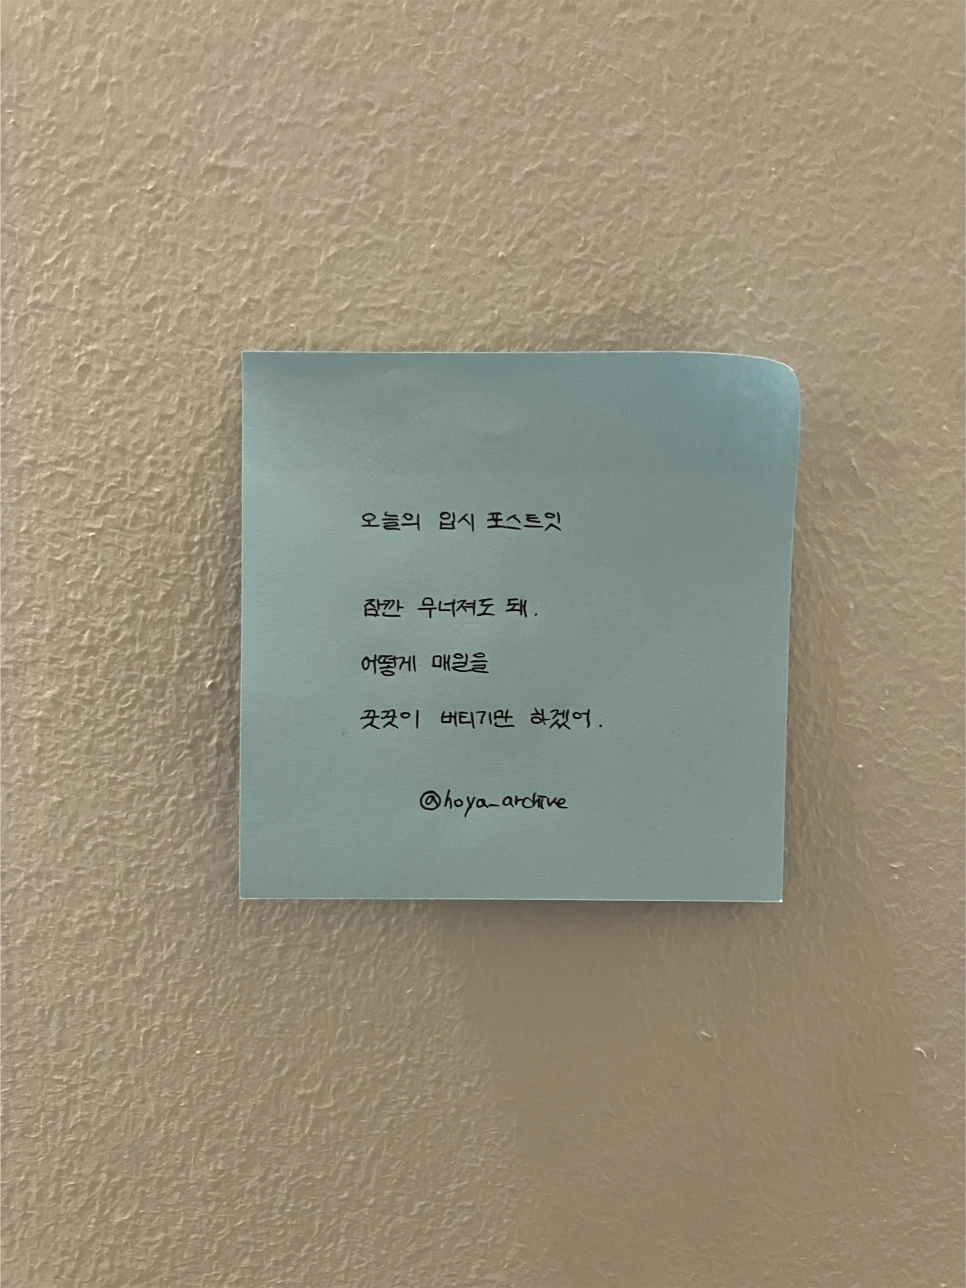 오늘의 입시 포스트잇
잠깐 무너져도 돼.
어떻게 매일을
꿋꿋이 버티기만 하겠어.
@hoya_archive